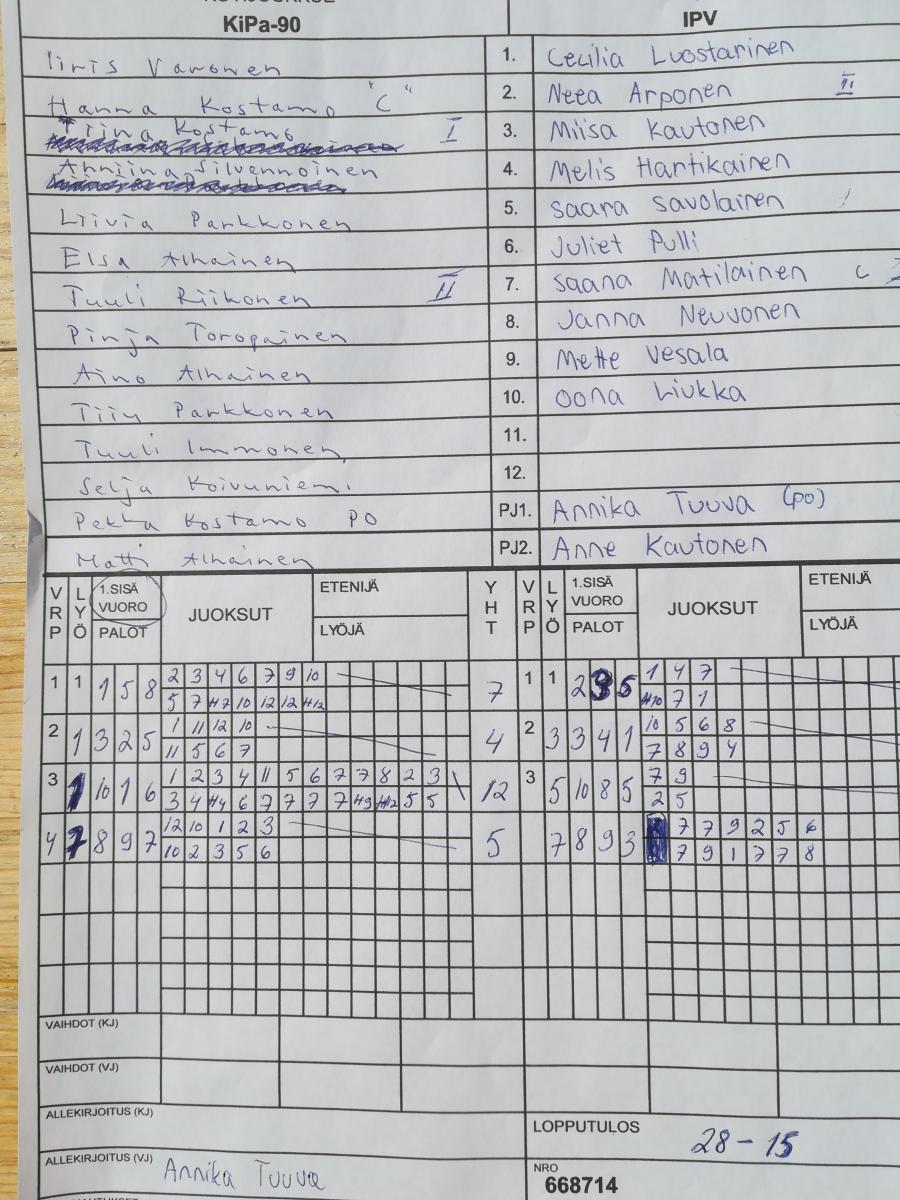 KiPa-90 IPV
Iiris Varonen 1. Cecilia Luostarinen
Hanna Kostamo "C" 2. Neea Arponen III
Tiina Kostamo I 3. Miisa Kautonen
Anniina Silvennoinen 4. Melis Hartikainen
Liivia Parkkonen 5. Saara Savolainen
Elsa Alhainen 6. Juliet Pulli
Tuuli Riikonen II 7. Saana Matilainen C
Pinja Toropainen 8. Janna Neuvonen
Aino Alhainen 9. Mette Vesala
Tiiu Parkkonen 10. Oona Liukka
Tuuli Immonen 11.
Selja Koivuniemi 12.
Pekka Kostamo PO PJ1. Annika Tuuva (po)
Matti Alhainen PJ2. Anne Kautonen
VRP LYÖ 1.SISÄ VUORO PALOT JUOKSUT ETENIJÄ LYÖJÄ YHT VRP LYÖ 1.SISÄ VUORO PALOT JUOKSUT ETENIJÄ LYÖJÄ
1 1 1 5 8 2 3 4 6 7 9 10 7 1 1 2 3 5 1 4 7
5 7 H7 10 12 12 H12 H10 7 1
2 1 3 2 5 1 11 12 10 4 2 3 3 4 1 10 5 6 8
11 5 6 7 7 8 9 4
3 1 10 1 6 1 2 3 4 11 5 6 7 7 8 2 3 12 3 5 10 8 5 7 9
3 4 H4 6 7 7 7 7 H9 H12 5 5 2 5
4 7 8 9 7 12 10 1 2 3 5 7 8 9 3 7 7 9 2 5 6
10 2 3 5 6 7 9 1 7 7 8
VAIHDOT (KJ)
VAIHDOT (VJ)
ALLEKIRJOITUS (KJ)
LOPPUTULOS 28-15
ALLEKIRJOITUS (VJ) Annika Tuuva
NRO
668714